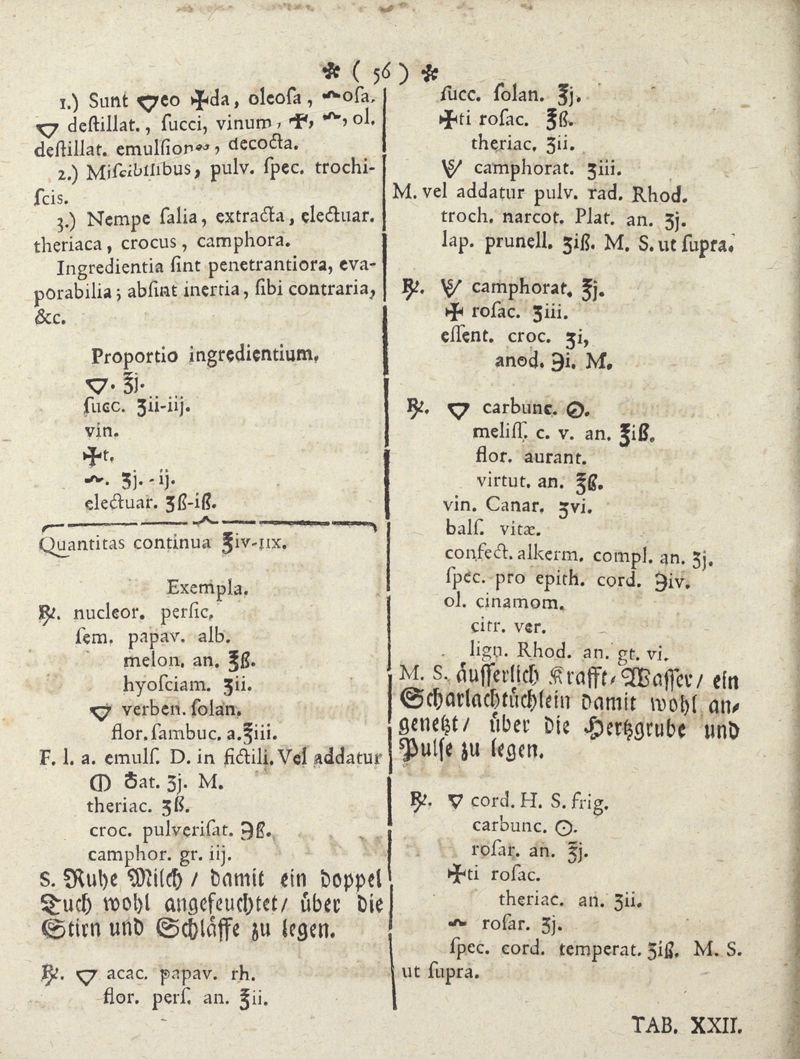 * ( 56 ) *
1.) Sunt 🜄eo 🜊da, oleosa, ofa,
🜄 deſtillat., ſucci, vinum, 🜊, ol.
deſtillat. emulſiones, decocta.
2.) Miſcibilibus, pulv. ſpec. trochi-
ſcis.
3.) Nempe ſalia, extracta, electuar.
theriaca, crocus, camphora.
Ingredientia ſint penetrantiora, eva-
porabilia; abſint inertia, ſibi contraria,
&c.
Proportio ingredientium.
🜄. ℥j.
ſucc. ʒii-iij.
vin.
🜊t.
ʒj.-ij.
electuar. ʒß-iß.
Quantitas continua ℥iv-iix.
Exempla.
℞. nucleor. perſic.
ſem. papav. alb.
melon. an. ℥ß.
hyoſciam. ʒii.
🜄 verben. ſolan.
flor. ſambuc. a.℥iii.
F. l. a. emulſ. D. in fictili. Vel addatur
🜕 Sat. ʒj. M.
theriac. ʒß.
croc. pulveriſat. ℈ß.
camphor. gr. iij.
S. Ruhe Milch / damit ein doppel
Tuch wohl angefeuchtet/ über die
Stirn und Schläffe zu legen.
℞. 🜄 acac. papav. rh.
flor. perſ. an. ℥ii.
ſucc. ſolan. ℥j.
🜊ti roſac. ℥ß.
theriac. ʒii.
camphorat. ʒiii.
M. vel addatur pulv. rad. Rhod.
troch. narcot. Plat. an. ʒj.
lap. prunell. ʒiß. M. S. ut ſupra.
℞. camphorat. ℥j.
🜊 roſac. ʒiii.
eſſent. croc. ʒi,
anod. ℈i. M.
℞. 🜄 carbunc. 🜔.
meliſſ. c. v. an. ℥iß.
flor. aurant.
virtut. an. ℥ß.
vin. Canar. ʒvi.
balſ. vitæ.
confect. alkerm. compl. an. ʒj.
ſpec. pro epith. cord. ℈iv.
ol. cinamom.
citr. ver.
lign. Rhod. an. gt. vi.
M. S. äuſſerlich Krafft-Waſſer/ ein
Scharlachtüchlein damit wohl an-
genetzt/ über die Hertzgrube und
Pulſe zu legen.
℞. 🜄 cord. H. S. frig.
carbunc. ☉.
roſar. an. ℥j.
🜊ti roſac.
theriac. an. ʒii.
roſar. ʒj.
ſpec. cord. temperat. ʒiß. M. S.
ut ſupra.
TAB. XXII.